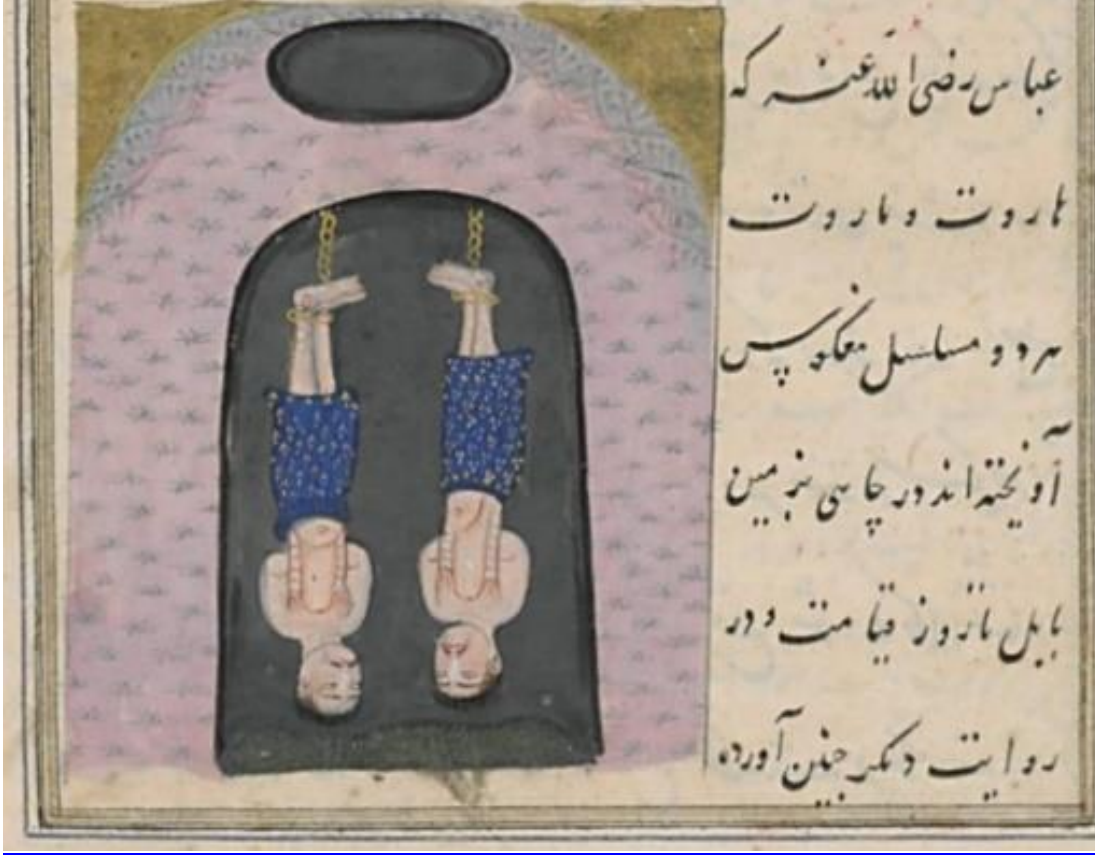 عباس رضی الله عنه که
هاروت و ماروت
هر دو مسلسل معکوس
آویخته اند در چاهی بزمین
بابل تا روز قیامت و در
روایت دیگر چنین آورده